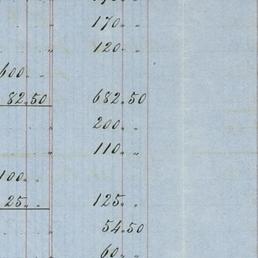 170 " "
120 " "
600 " "
82.50 682.50
200 " "
110 " "
100 " "
25 " " 125 " "
54.50
60 " "